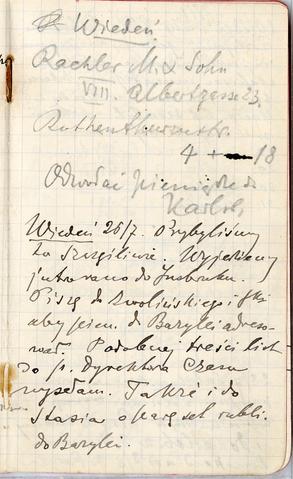 Wiedeń.
Rachler M. & Sohn
VIII. Albertgasse 23.
Rothenthurmstr.
4 + 18
Odwołać pieniądze do
Karlsb.
Wiedeń 26/7. Przybyliśmy
tu szczęśliwie. Wyjeżdżamy
jutro rano do Insbruku.
Piszę do Zwolińskiego i
aby pien. do Bazylei adreso-
wał. Podobnej treści list
do p. Dyrektora Czasu
wysyłam. Także i do
Stasia o parę set rubli.
do Bazylei.